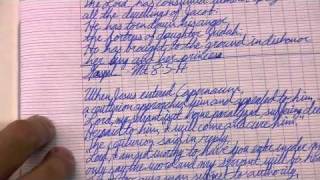 the Lord has consumed without
all the dwellings of Jacob.
He has torn down in anger
the fortress of daughter Judah.
He has brought to the ground in dishonor
her king and her princes.
Gospel Mt 8:5-17
When Jesus entered Capernaum,
a centurion approached him and appealed to him,
Lord, my servant is at home paralyzed, suffering
He said to him, I will come and cure him.
The centurion said in reply,
Lord, I am not worthy to have you enter under my
only say the word and my servant will be
authority,